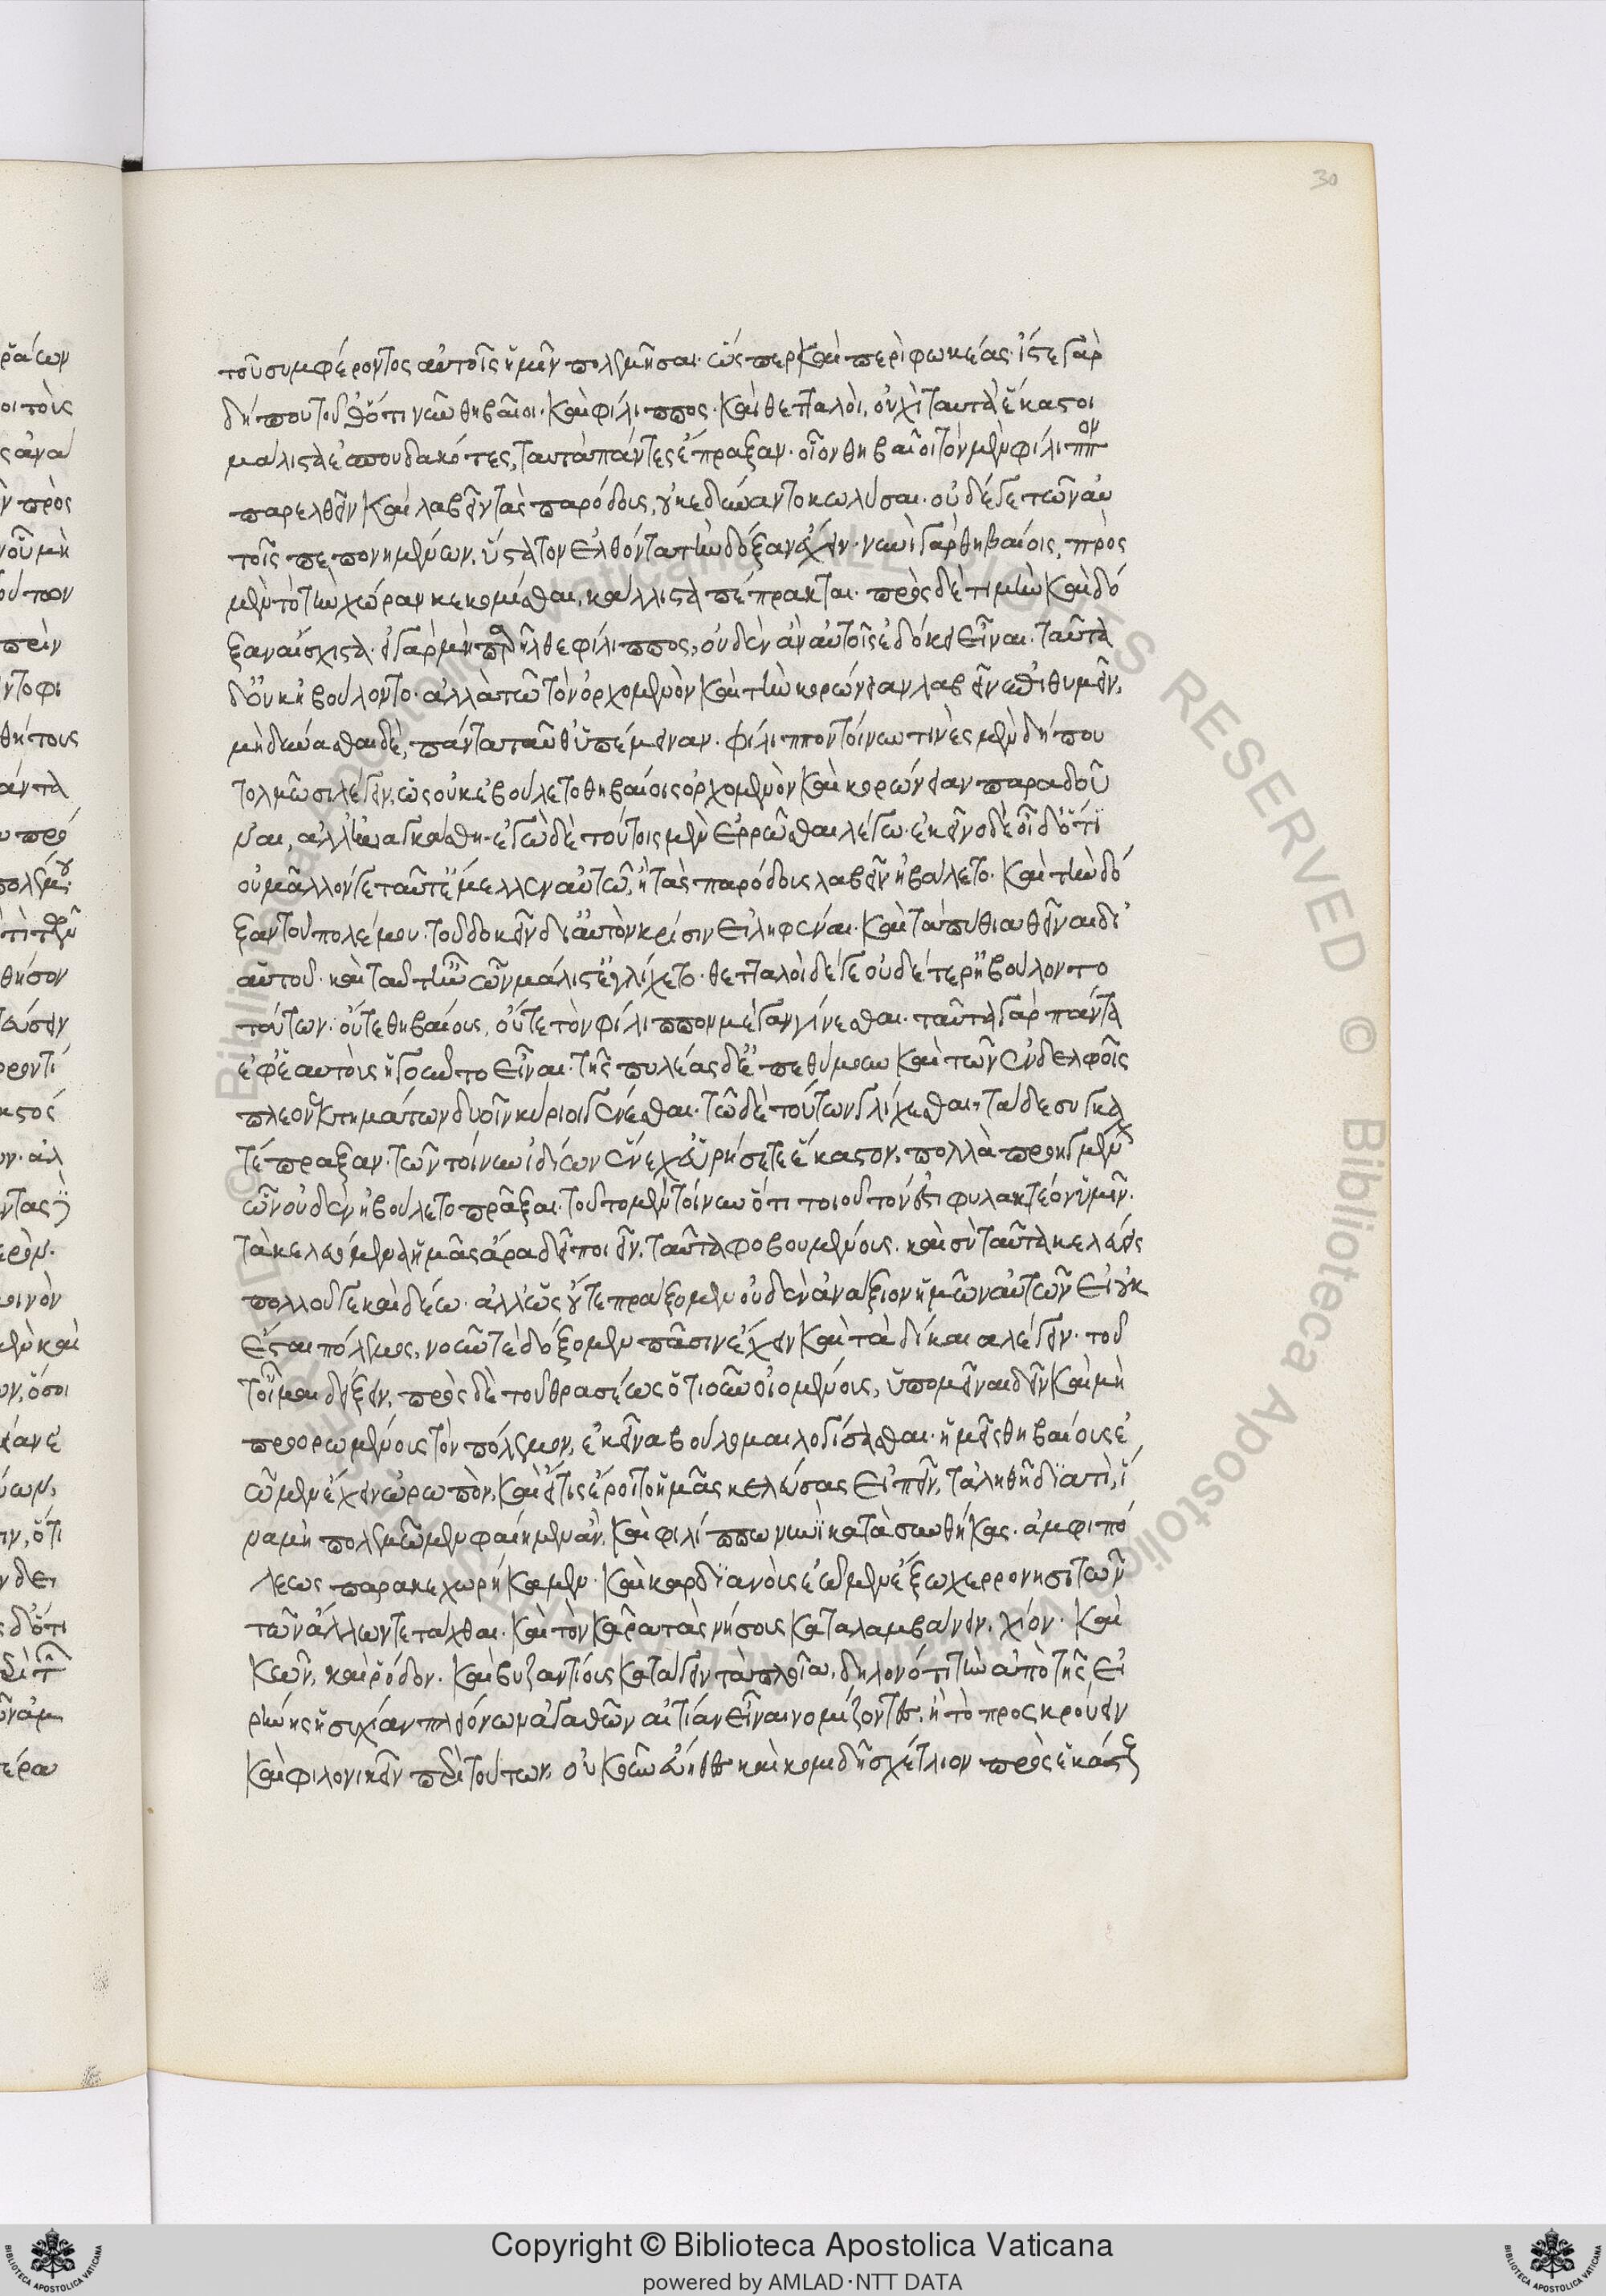 30
τοῦ συμφέροντος αὐτοῖς ἡμῖν πολεμῆσαι. ὥσπερ καὶ περὶ φωκέας. ἴστε γὰρ
δήπου τοῦθ ὅτι νῦν θηβαῖοι. καὶ φίλιππος. καὶ θετταλοὶ, οὐχὶ ταυτὰ ἕκαστοι
μάλιστα ἐσπουδακότες, ταυτὰ πάντες ἔπραξαν. οἷον θηβαῖοι τὸν μὲν φίλιππον
παρελθεῖν καὶ λαβεῖν τὰς παρόδους, οὐκ ἐδύναντο κωλῦσαι. οὐδέ γε τῶν αὐ
τοῖς πεπονημένων, ὕστατον ἐλθόντα τὴν δόξαν ἔχειν. νυνὶ γὰρ θηβαίοις, πρὸς
μὲν τὸ τὴν χώραν κεκομίσθαι, κάλλιστα πέπρακται. πρὸς δὲ τιμὴν καὶ δό
ξαν αἴσχιστα. εἰ γὰρ μὴ παρῆλθε φίλιππος, οὐδὲν ἂν αὐτοῖς ἐδόκει εἶναι. ταῦτα
δ οὐκ ἠβούλοντο. ἀλλὰ τῶ τὸν ὀρχομενὸν καὶ τὴν κορώνειαν λαβεῖν ἐπιθυμεῖν,
μὴ δύνασθαι δὲ, πάντα ταῦθ ὑπέμειναν. φίλιππον τοίνυν τινὲς μὲν δήπου
τολμῶσι λέγειν, ὡς οὐκ ἐβούλετο θηβαίοις ὀρχομενὸν καὶ κορώνειαν παραδοῦ
ναι, ἀλλ ἠναγκάσθη. ἐγὼ δὲ τούτοις μὲν ἐρρῶσθαι λέγω. ἐκεῖνο δὲ οἶδ ὅτι
οὐ μᾶλλόν γε ταῦτ ἔμελλεν αὐτῶ, ἢ τὰς παρόδους λαβεῖν ἠβούλετο. καὶ τὴν δό
ξαν τοῦ πολέμου. τοῦ δοκεῖν δι αὐτὸν κρίσιν εἰληφέναι. καὶ τὰ πύθια θεῖναι δι
αὑτοῦ. καὶ ταῦτ ἦν ὧν μάλιστ ἐγλίχετο. θετταλοὶ δέ γε οὐδέτερ ἠβούλοντο
τούτων. οὔτε θηβαίους, οὔτε τὸν φίλιππον μέγαν γίνεσθαι. ταῦτα γὰρ πάντα
ἐφ ἑαυτοὺς ἡγοῦντο εἶναι. τῆς πυλέας δ ἐπεθύμουν καὶ τῶν ἐν δελφοῖς
πλεονεκτημάτων δυοῖν κύριοι γενέσθαι. τῶ δὲ τούτων γλίχεσθαι, τάδε συγκα
τέπραξαν. τῶν τοίνυν ἰδίων ἕνεχ εὑρήσετε ἕκαστον, πολλὰ προηγμέν
ὧν οὐδὲν ἠβούλετο πρᾶξαι. τοῦτο μὲν τοίνυν ὅτι τοιοῦτόν ἐστι φυλακτέον ὑμῖν.
τὰ κελευόμενα ἡμᾶς ἄρα δεῖ ποιεῖν, ταῦτα φοβουμένους. καὶ σὺ ταῦτα κελεύεις
πολλοῦ γε καὶ δέω. ἀλλ ὡς οὔτε πράξομεν οὐδὲν ἀνάξιον ἡμῶν αὐτῶν εἰ οὐκ
ἔσται πόλεμος, νοῦν τε δόξομεν πᾶσιν ἔχειν καὶ τὰ δίκαια λέγειν. τοῦ
τ οἶμαι δείξειν, πρὸς δὲ τοῦ θρασέως ὁτιοῦν οἰομένους, ὑπομεῖναι δεῖν καὶ μὴ
προορωμένους τὸν πόλεμον, ἐκεῖνα βούλομαι λογίσασθαι. ἡμεῖς θηβαίους ἐ
ῶμεν ἔχειν ὠρωπὸν, καὶ εἴ τις ἔροιτο ἡμᾶς κελεύσας εἰπεῖν, τἀληθῆ διατὶ, ἵ
να μὴ πολεμῶμεν φαίημεν ἂν. καὶ φιλίππω νυνῒ κατὰ συνθήκας. ἀμφιπό
λεως παρακεχωρήκαμεν. καὶ καρδϊανοὺς ἐῶμεν ἔξω χερρονησϊτῶν
τῶν ἄλλων τετάχθαι. καὶ τὸν κᾶρα τὰς νήσους καταλαμβάνειν. χίον. καὶ
κῶν, καὶ ῥόδον. καὶ βυζαντίους κατάγειν τὰ πλοῖα, δηλονότι τὴν ἀπὸ τῆς εἰ
ρήνης ἡσυχίαν πλειόνων ἀγαθῶν αἰτίαν εἶναι νομίζοντες, ἢ τὸ προσκρούειν
καὶ φιλονικεῖν περὶ τούτων, οὐκοῦν εὔηθες καὶ κομιδῆ σχέτλιον πρὸς ἑκάστ
Copyright © Biblioteca Apostolica Vaticana
powered by AMLAD·NTT DATA